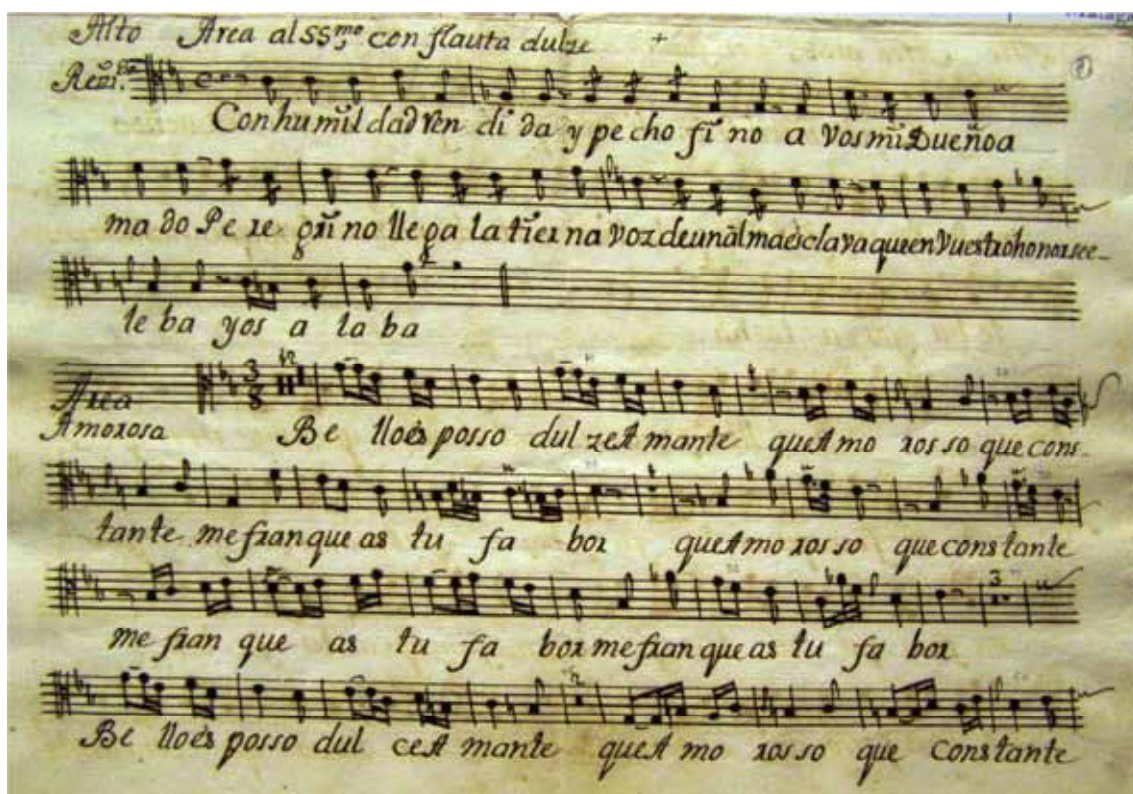 Alto Area al SS.mo con flauta dulze
Reztº.
Con humil dad Ren di da y pe cho fi no a Vos mi Dueño a
ma do Pe re gri no lle ga la tier na voz de un alma esclava que en Vuestro honor se e_
le ba y os a la ba
Area
Amorosa
3
8
12
Be llo es posso dul ze A mante que A mo ros so que cons_
tante me fran que as tu fa bor que A mo ros so que constante
3
me fran que as tu fa bor me fran que as tu fa bor
Be llo es posso dul ce A mante que A mo ros so que constante